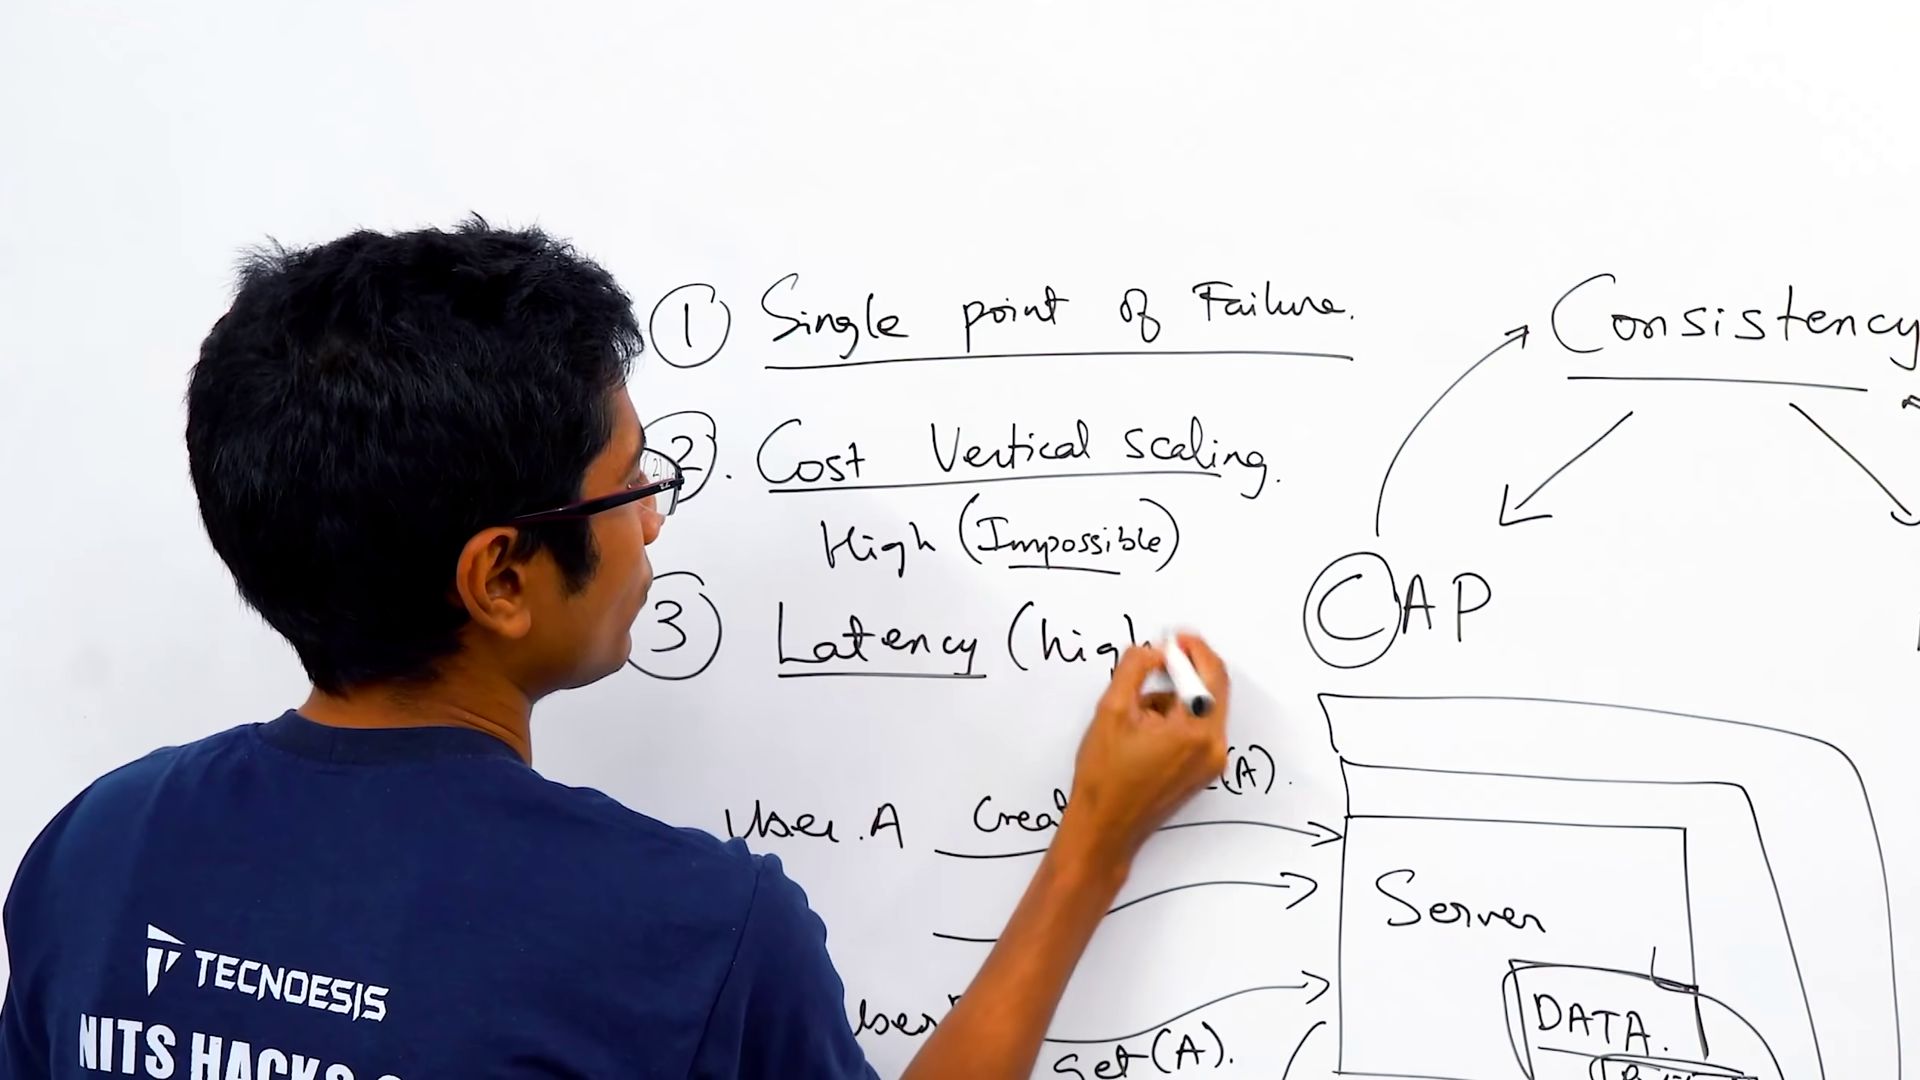 ① Single point of Failure.
②. Cost Vertical scaling.
High (Impossible)
③ Latency (high
Consistency
CAP
User.A
(A).
Server
DATA.
get(A).
TECNOESIS
NITS HACKS